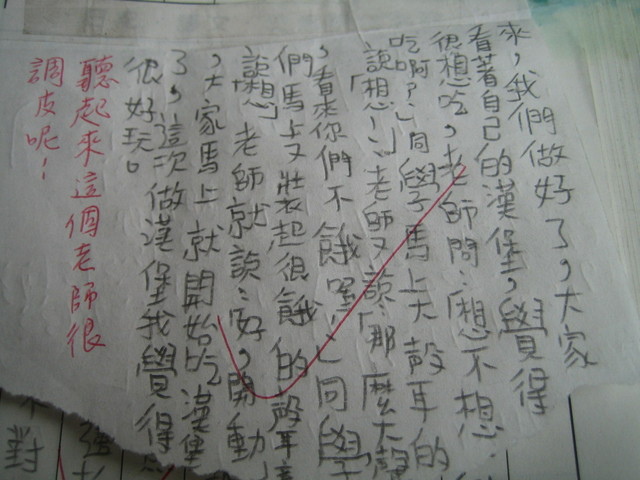 來,我們做好了,大家
看著自己的漢堡,覺得
很想吃,老師問:「想不想
吃啊?」同學馬上大聲的
說「想!」老師又說:「那麼大聲
,看來你們不餓喔!」同學
們馬上又裝起很餓的聲音
說「想」老師就說:「好,開動」
,大家馬上就開始吃漢堡
了,這次做漢堡我覺得
很好玩。
聽起來這個老師很
調皮呢!
強
對